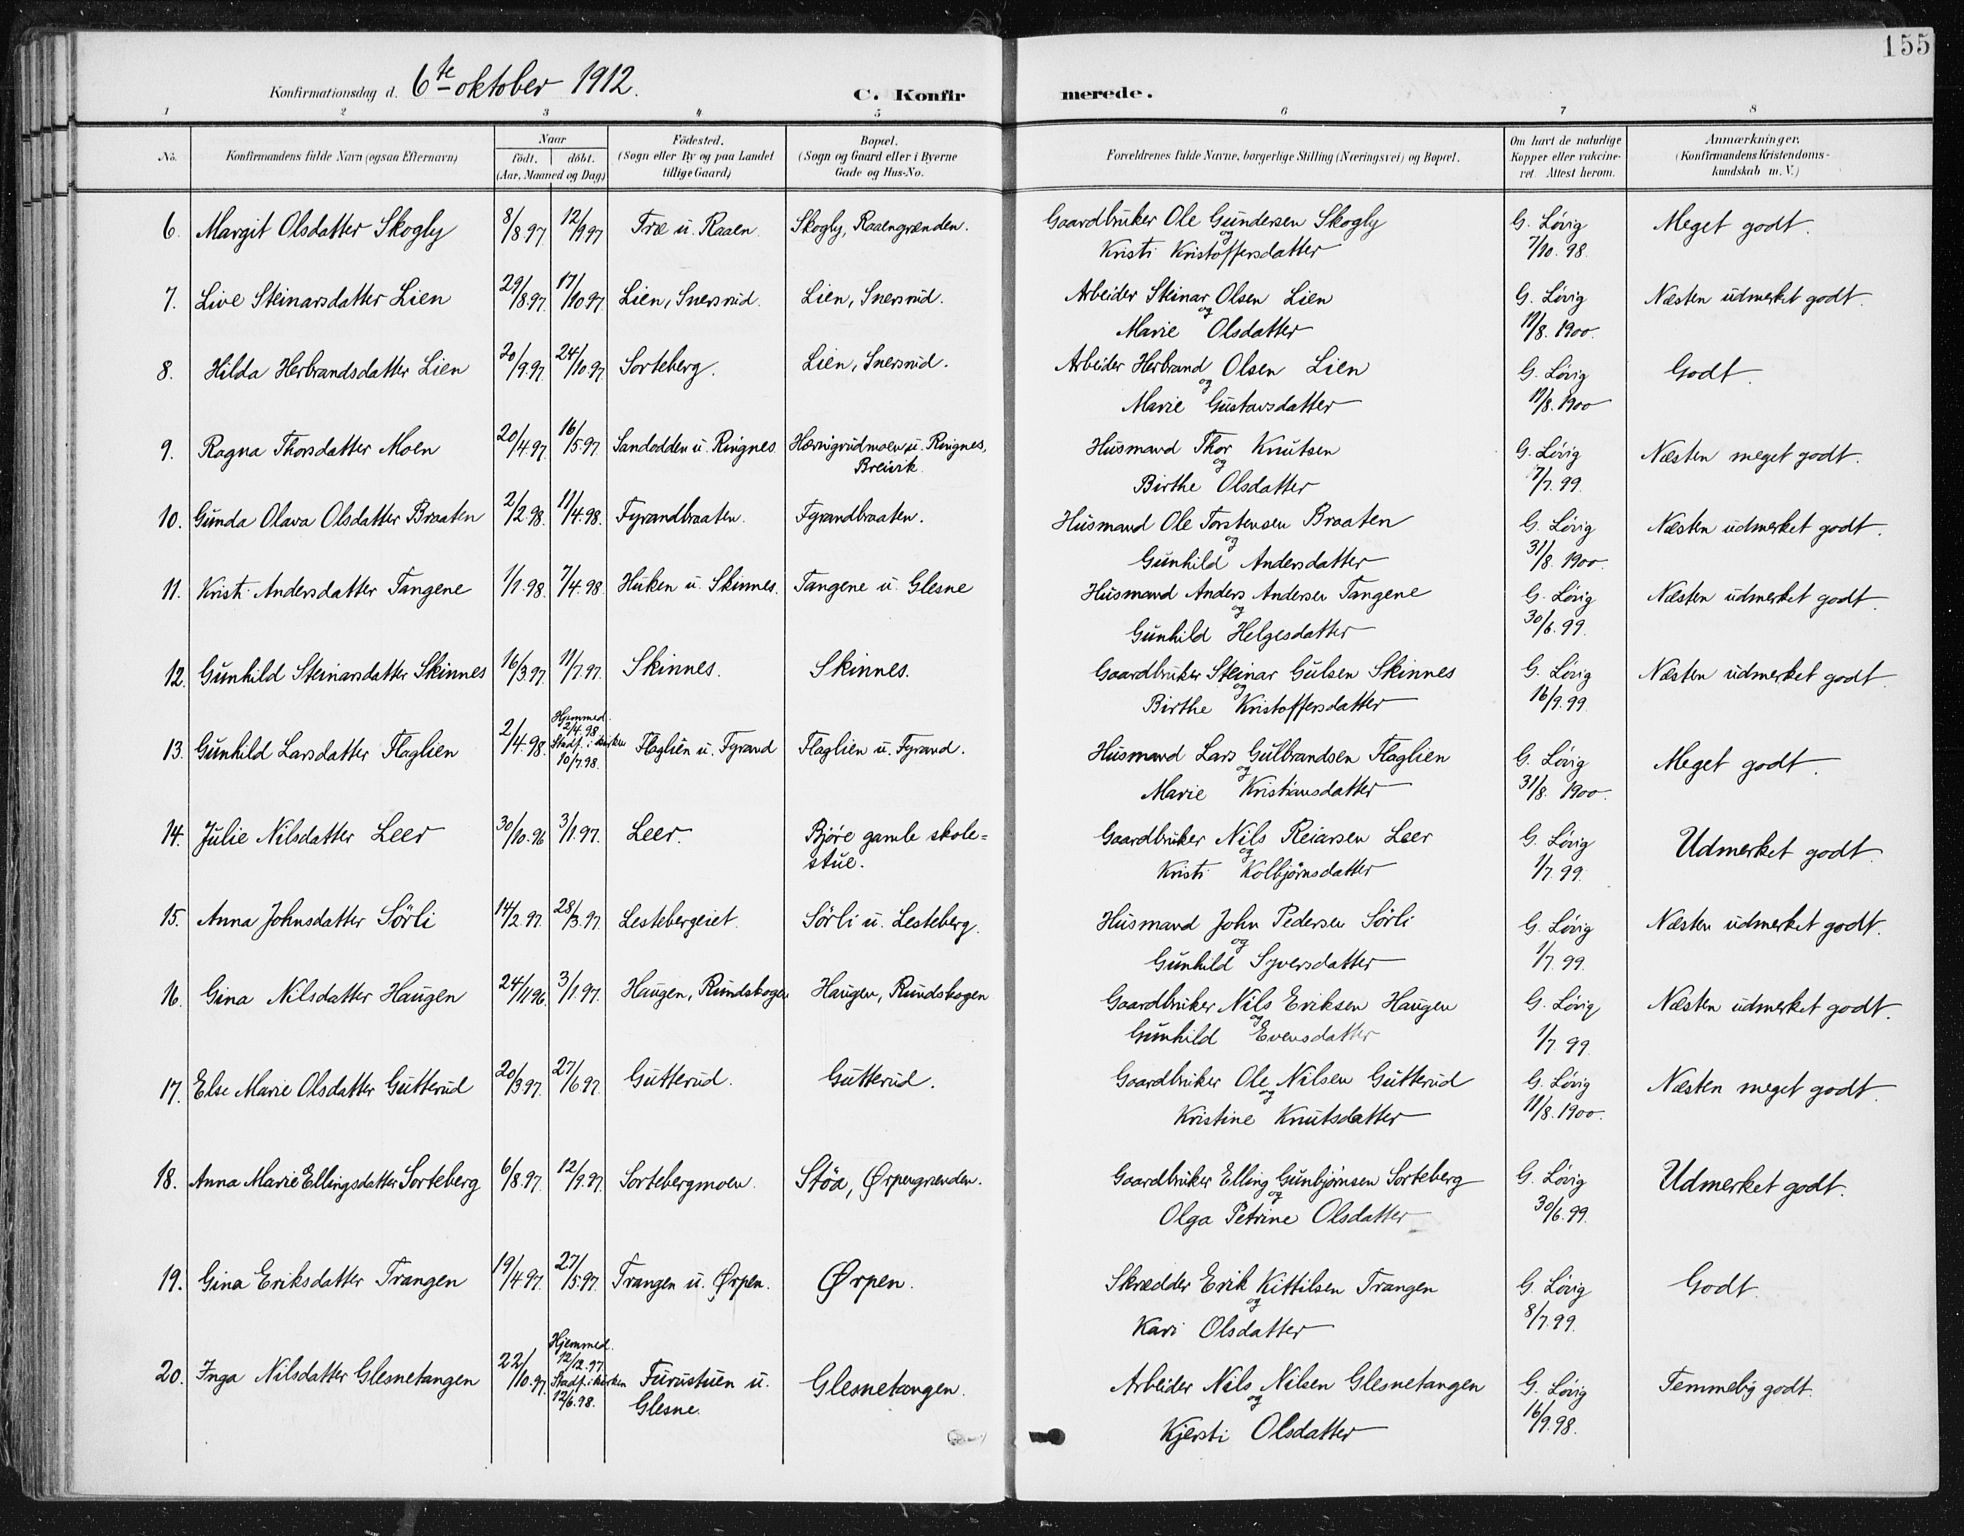 155
Konfirmationsdag d. 6te oktober 1912.
C. Konfirmerede.
1 2 3 4 5 6 7 8
No.
Konfirmandens fulde Navn (ogsaa Efternavn)
Naar
födt. döbt.
(Aar, Maaned og Dag)
Födested.
(Sogn eller By og paa Landet
tillige Gaard)
Bopæl.
(Sogn og Gaard eller i Byerne
Gade og Hus-No.
Forældrenes fulde Navne, borgerlige Stilling (Næringsvei) og Bopæl.
Om havt de naturlige
Kopper eller vakcine-
ret. Attest herom.
Anmærkninger.
(Konfirmandens Kristendoms-
kundskab m. V.)
6. Margit Olsdatter Skogly 8/8 97 12/9 97 Træ u. Raaen. Skogly, Raaengrænden. Gaardbruker Ole Gundersen Skogly G. Løvig Meget godt.
og
Kristi Kristoffersdatter 7/10. 98.
7. Live Steinarsdatter Lien 29/8.97. 17/10.97. Lien, Snersrud. Lien, Snersrud. Arbeider Steinar Olsen Lien G. Løvig Næsten udmerket godt.
og
Marie Olsdatter 17/8. 1900.
8. Hilda Herbrandsdatter Lien 20/9.97. 24/10.97. Sorteberg. Lien, Snersrud. Arbeider Herbrand Olsen Lien G. Løvig Godt.
og
Marie Gustavsdatter 17/8. 1900
9. Ragna Thorsdatter Moen 20/4.97. 16/5.97. Sandodden u. Ringnes Hærnigrudmoen u. Ringnes, Husmand Thor Knutsen G. Løvig Næsten meget godt.
Breivik. og
Birthe Olsdatter 7/7. 99.
10. Gunda Olava Olsdatter Braaten 2/2.98. 11/4.98. Fyrandbraaten. Fyrandbraaten. Husmand Ole Torstensen Braaten G. Løvig Næsten udmerket godt.
og
Gunhild Andersdatter 31/8. 1900.
11. Kristi Andersdatter Tangene 1/1.98. 7/4.98. Huken u. Skinnes. Tangene u. Glesne Husmand Anders Andersen Tangene G. Løvig Næsten udmerket godt.
og
Gunhild Helgesdatter 30/6. 99.
12. Gunhild Steinarsdatter Skinnes 16/3.97. 11/7.97. Skinnes. Skinnes. Gaardbruker Steinar Gulsen Skinnes G. Løvig Næsten udmerket godt.
og
Birthe Kristoffersdatter 16/9.99.
13. Gunhild Larsdatter Flaglien 2/4.98. Hjemmed. 2/4.98. Stadf. i kirken 10/7.98. Flaglien u. Fyrand Flaglien u. Fyrand. Husmand Lars Gulbrandsen Flaglien G. Løvig Meget godt.
og
Marie Kristiansdatter 31/8. 1900.
14. Julie Nilsdatter Leer 30/10.96 3/1.97. Leer. Bjøre gamle skole= Gaardbruker Nils Reiarsen Leer G. Løvig Udmerket godt.
stue. og
Kristi Kolbjørnsdatter 1/7. 99.
15. Anna Johnsdatter Sörli 14/2.97. 28/3.97. Lestebergeiet. Sörli u. Lesteberg. Husmand John Pedersen Sörli G. Løvig Næsten udmerket godt.
og
Gunhild Syversdatter 1/7. 99.
16. Gina Nilsdatter Haugen 24/11 96. 3/1.97. Haugen, Rundskogen Haugen, Rundskogen Gaardbruker Nils Eriksen Haugen G. Løvig Næsten udmerket godt.
og
Gunhild Evensdatter 1/7. 99.
17. Else Marie Olsdatter Gutterud 20/3 97. 27/6.97. Gutterud. Gutterud. Gaardbruker Ole Nilsen Gutterud G. Løvig Næsten meget godt.
og
Kristine Knutsdatter 11/8. 1900.
18. Anna Marie Ellingsdatter Sorteberg 6/8.97. 12/9.97. Sortebergmoen. Stöa, Ørpengrænden. Gaardbruker Elling Gunbjørnsen Sorteberg G. Løvig Udmerket godt.
og
Olga Petrine Olsdatter 30/6.99.
19. Gina Eriksdatter Trangen 19/4.97. 27/5.97. Trangen u. Ørpen. Ørpen. Skrædder Erik Kittilsen Trangen G. Løvig Godt.
og
Kari Olsdatter 8/7.99.
20. Inga Nilsdatter Glesnetangen 22/10.97. Hjemmed. 12/12.97. Stadf. i kirken 12/6.98. Furustuen u. Glesnetangen. Arbeider Nils Nilsen Glesnetangen G. Løvig Temmelig godt.
Glesne. og
Kjersti Olsdatter 16/9.98.